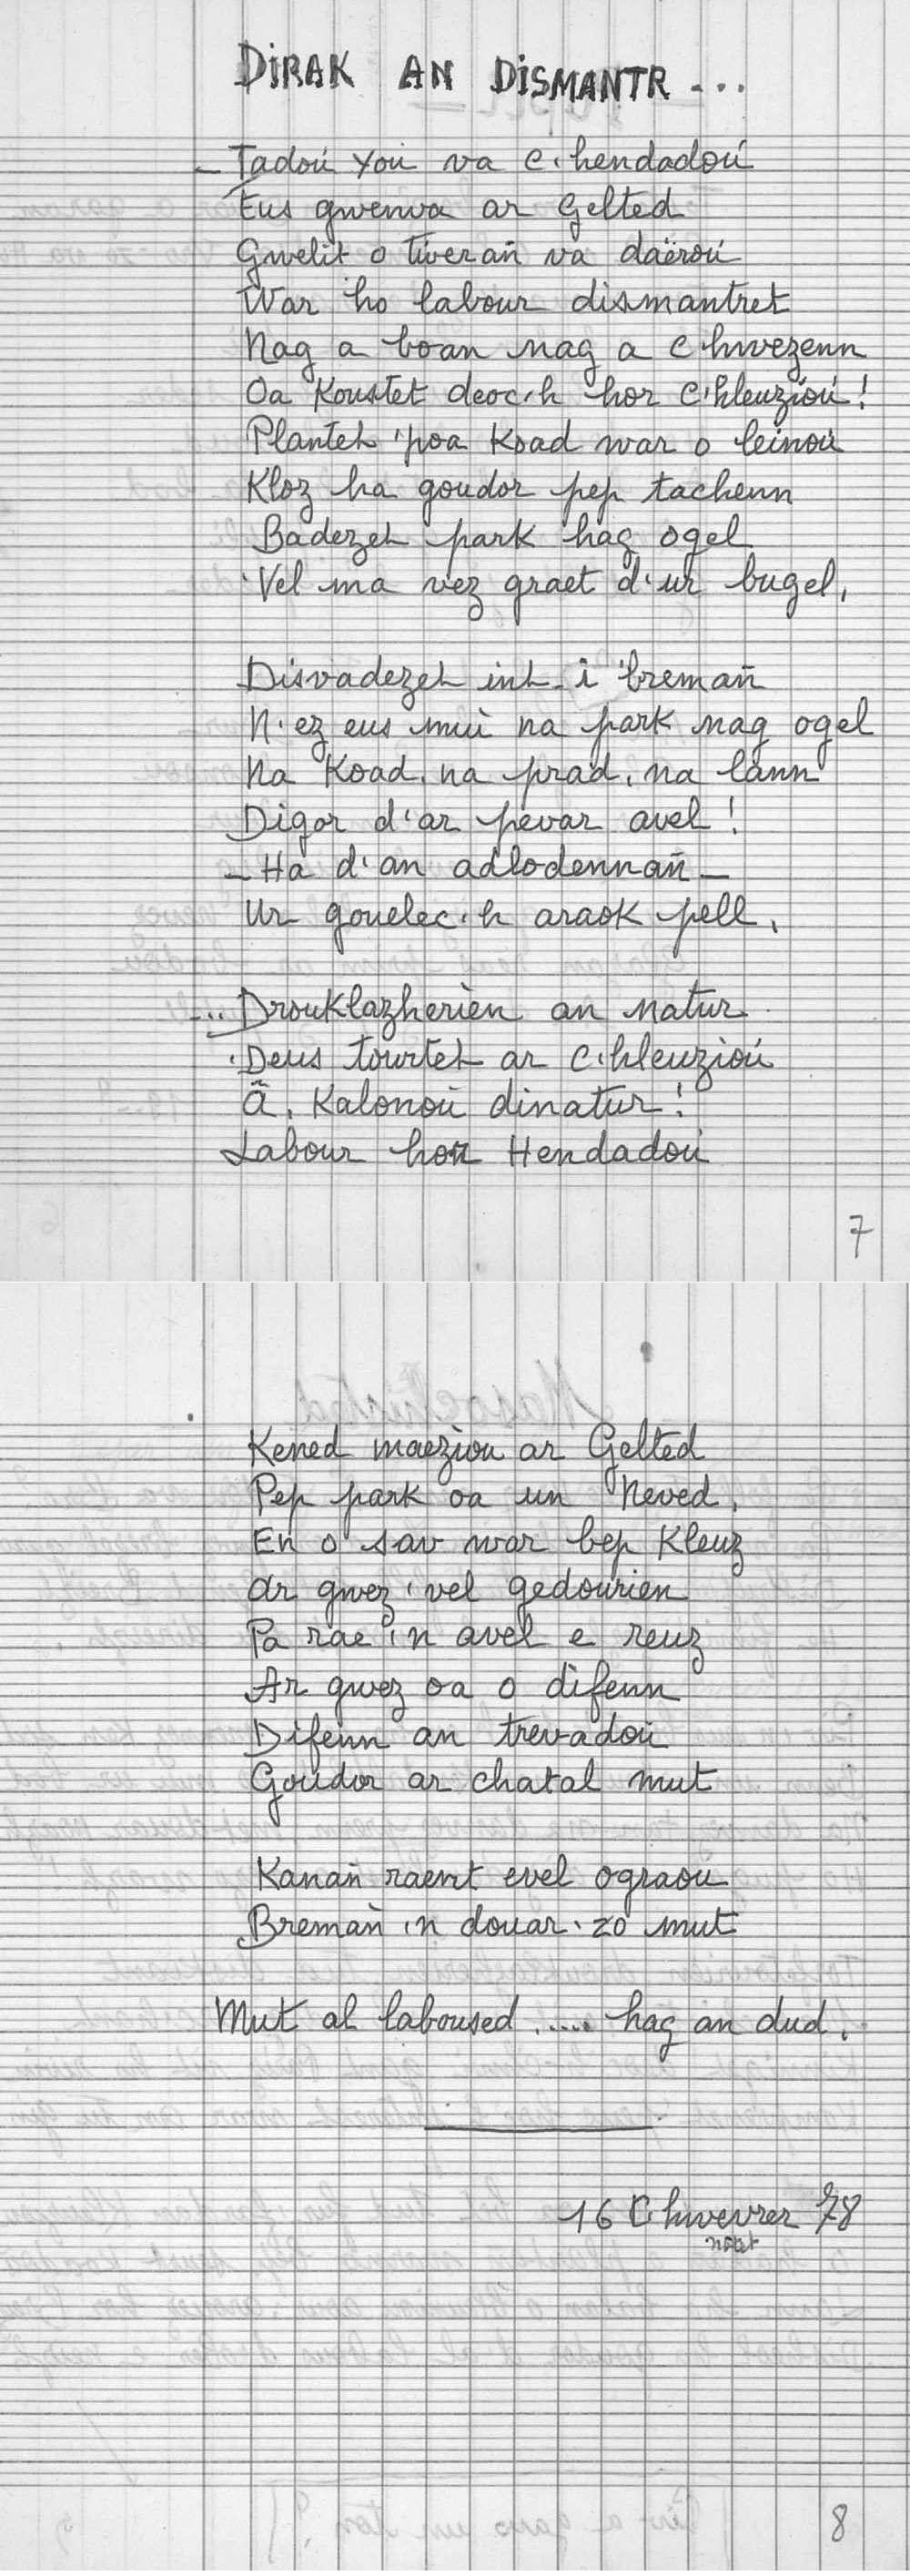 DIRAK AN DISMANTR...
- Tadoù you va c'hendadoù
Eus gwenva ar Gelted
Gwelit o tiverañ va daëroù
War ho labour dismantret
Nag a boan nag a c'hwezenn
Oa Koustet deoc'h hor c'hleuzioù!
Plantet 'poa Koad war o leinoù
Kloz ha goudor pep tachenn
Badezet park hag ogel
'Vel ma vez graet d'ur bugel.
Disvadezet int-i 'bremañ
N'ez eus mui na park nag ogel
Na Koad, na prad, na lann
Digor d'ar pevar avel!
- Ha d'an adlodennañ -
Ur gouelec'h araok pell.
... Drouklazherien an natur
'Deus tourtet ar c'hleuzioù
Ã, Kalonoù dinatur!
Labour hon Hendadoù
7
Kened maeziou ar Gelted
Pep park oa un Neved.
En o sav war bep Kleuz
Ar gwez 'vel gedourien
Pa rae 'n avel e reuz
Ar gwez oa o difenn
Difenn an trevadoù
Goudor ar chatal mut
Kanañ raent evel ograou
Bremañ 'n douar zo mut
Mut al laboused ..... hag an dud.
16 C'hwevrer 78
8